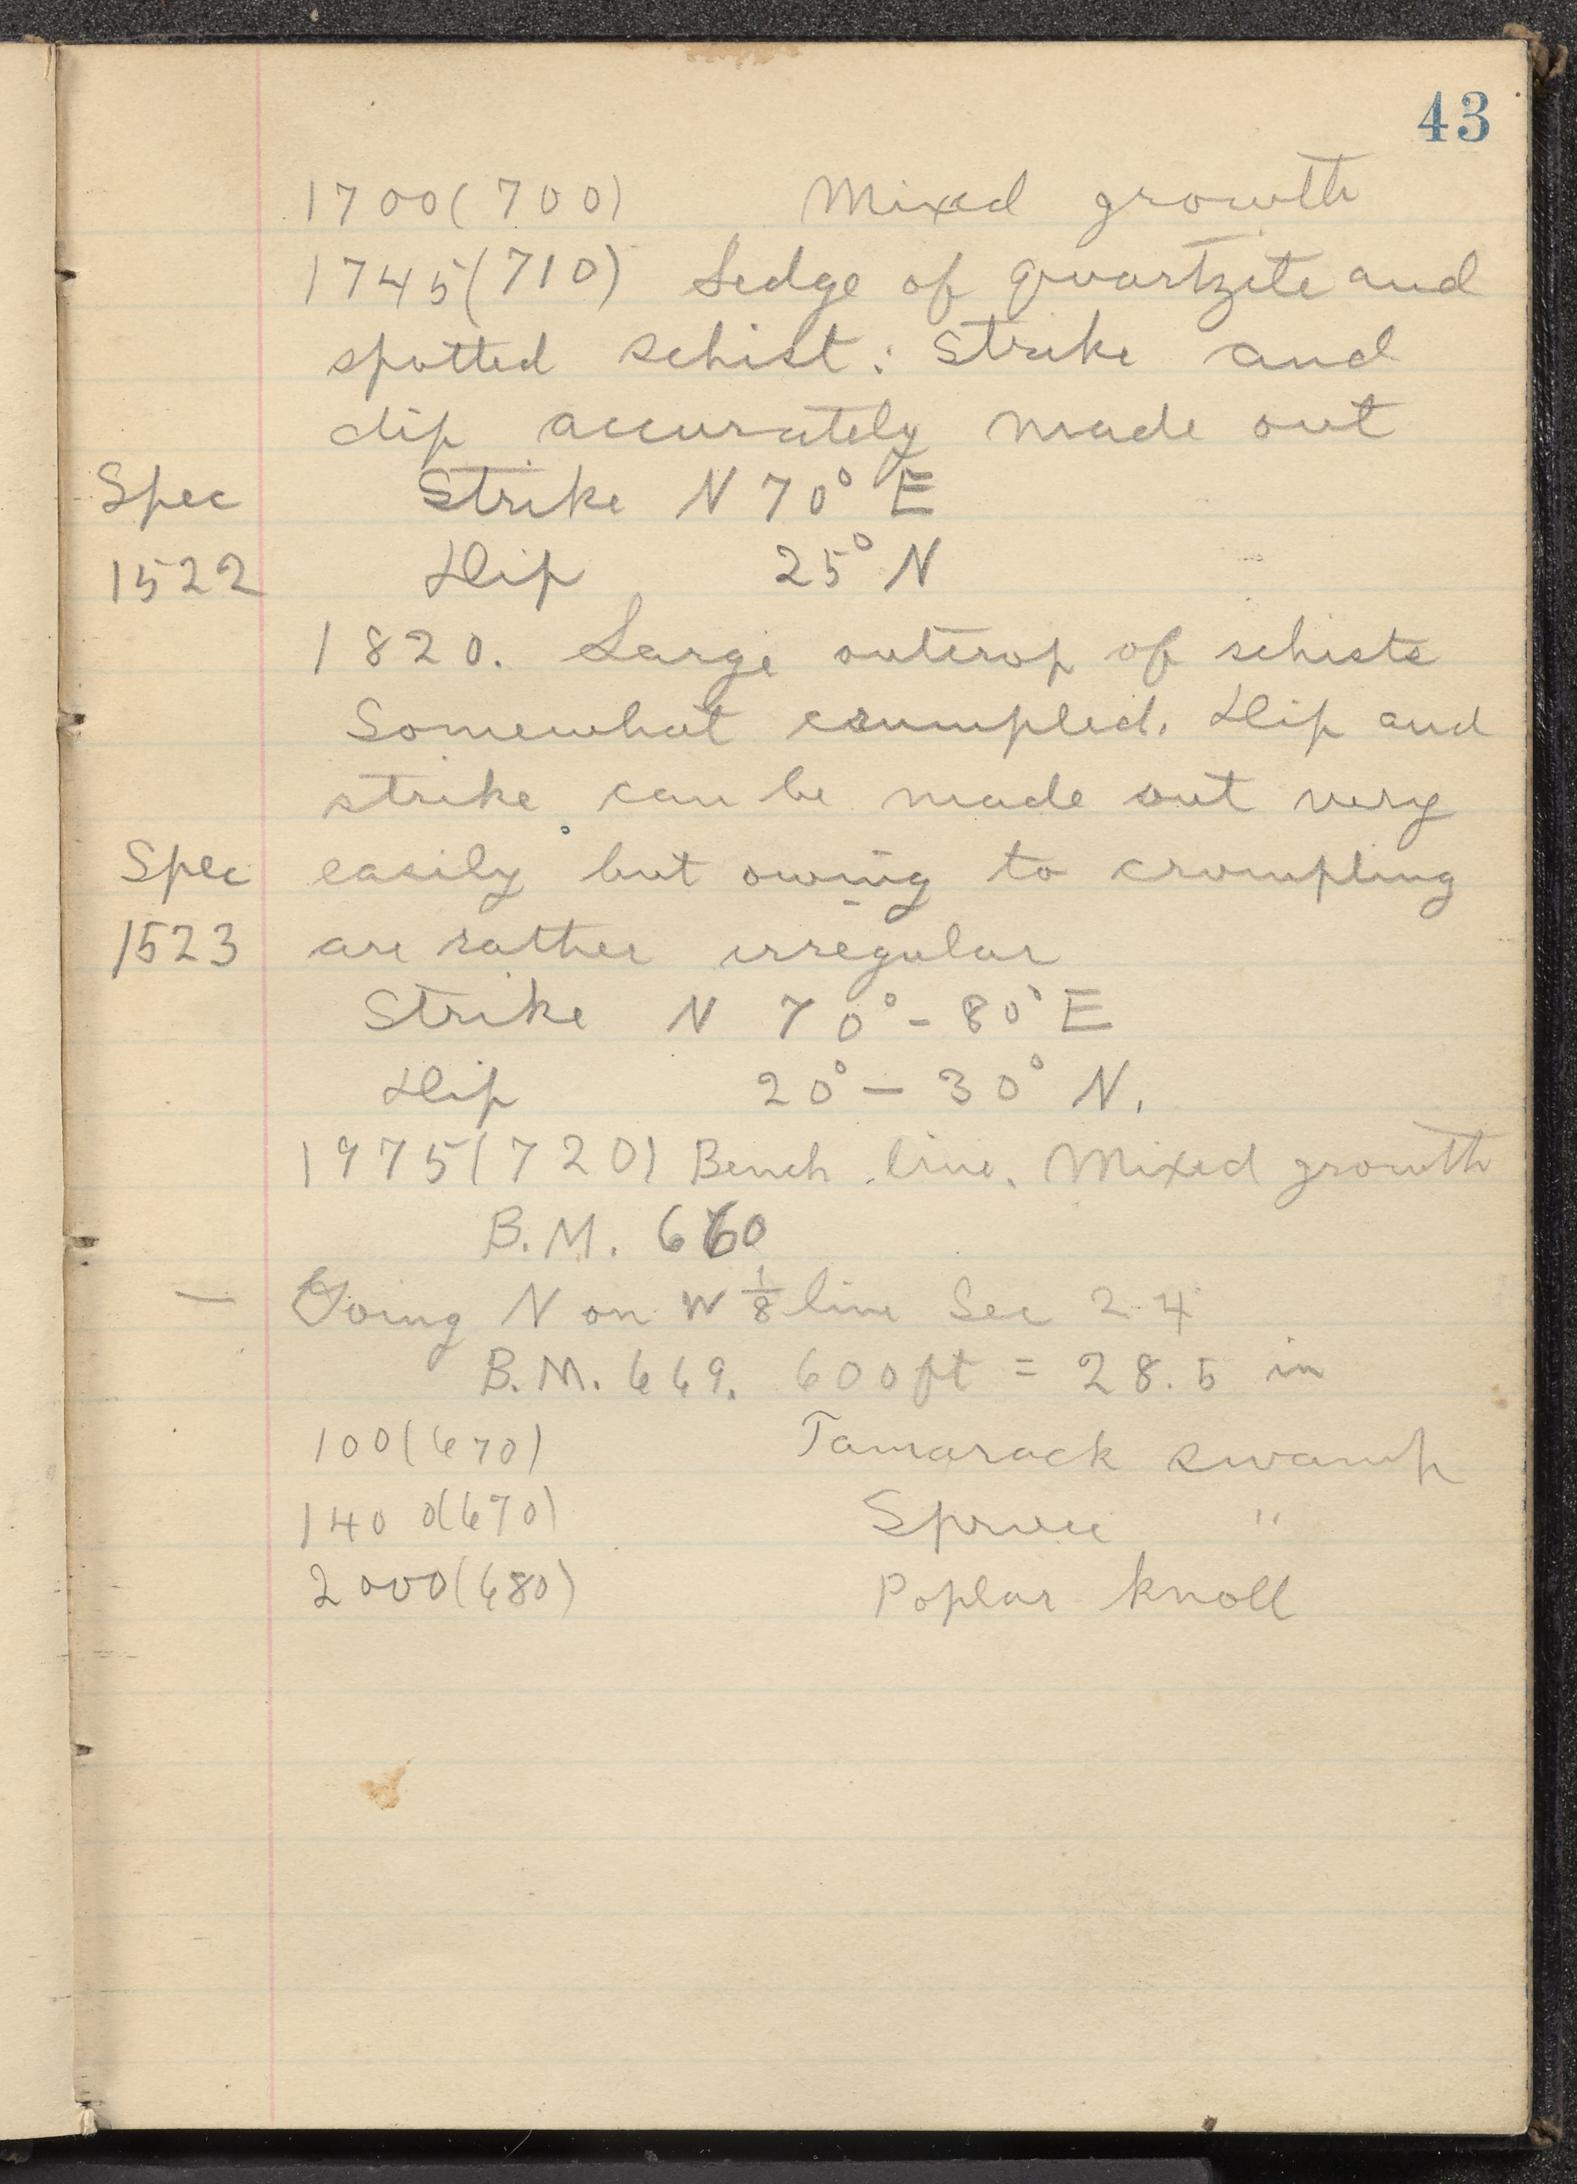 43
1700(700) Mixed growth
1745(710) Ledge of quartzite and
spotted schist. Strike and
dip accurately made out
Spec Strike N 70° E
1522 Dip 25° N
1820. Large outcrop of schists
Somewhat crumpled. Dip and
strike can be made out very
Spec easily but owing to crumpling
1523 are rather irregular
Strike N 70° - 80° E
Dip 20° - 30° N.
1975(720) Bench line. Mixed growth
B.M. 660
— Going N on W 1/8 line Sec 24
B.M. 669. 600 ft = 28.5 in
100(670) Tamarack swamp
1400(670) Spruce "
2000(680) Poplar knoll